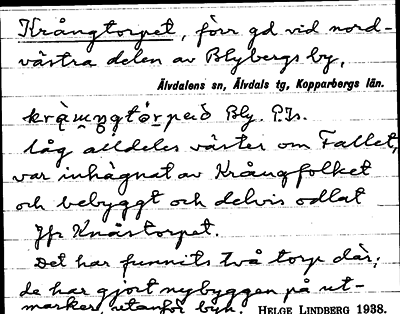 Krångtorpet, förr gd vid nord-
västra delen av Blybergs by,
Älvdalens sn, Älvdals tg, Kopparbergs län.
Bly. P.Js.
låg alldeles väster om Fallet,
var inhägnat av Krångfolket
och bebyggt och delvis odlat
Jfr Knåstorpet.
Det har funnits två torp där;
de har gjort nybyggen på ut-
marken utanför byn. HELGE LINDBERG 1938.